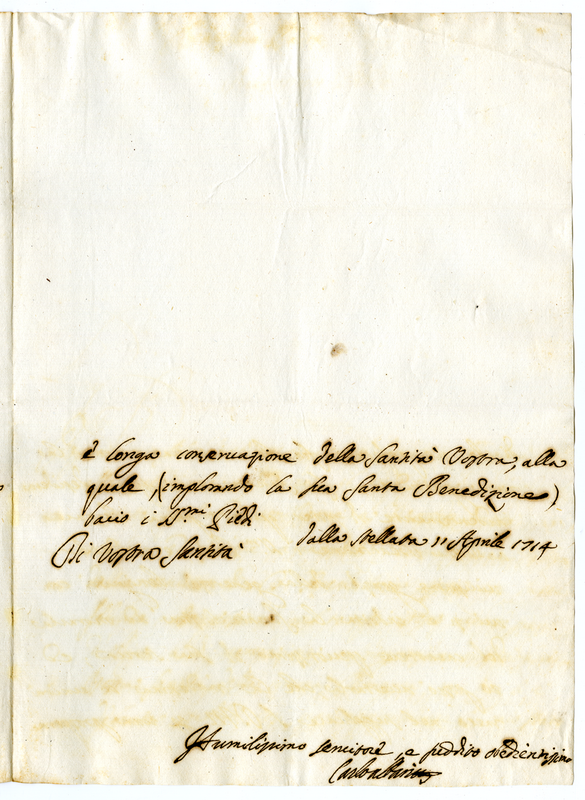 è longa conseruazione della Santità Vostra, alla
quale, (implorando la sua Santa Benedizione)
bacio i S.mi Piedi
Di Vostra Santità dalla Stellata 11 Aprile 1714
Humilissimo seruitore, e suddito obedientissimo